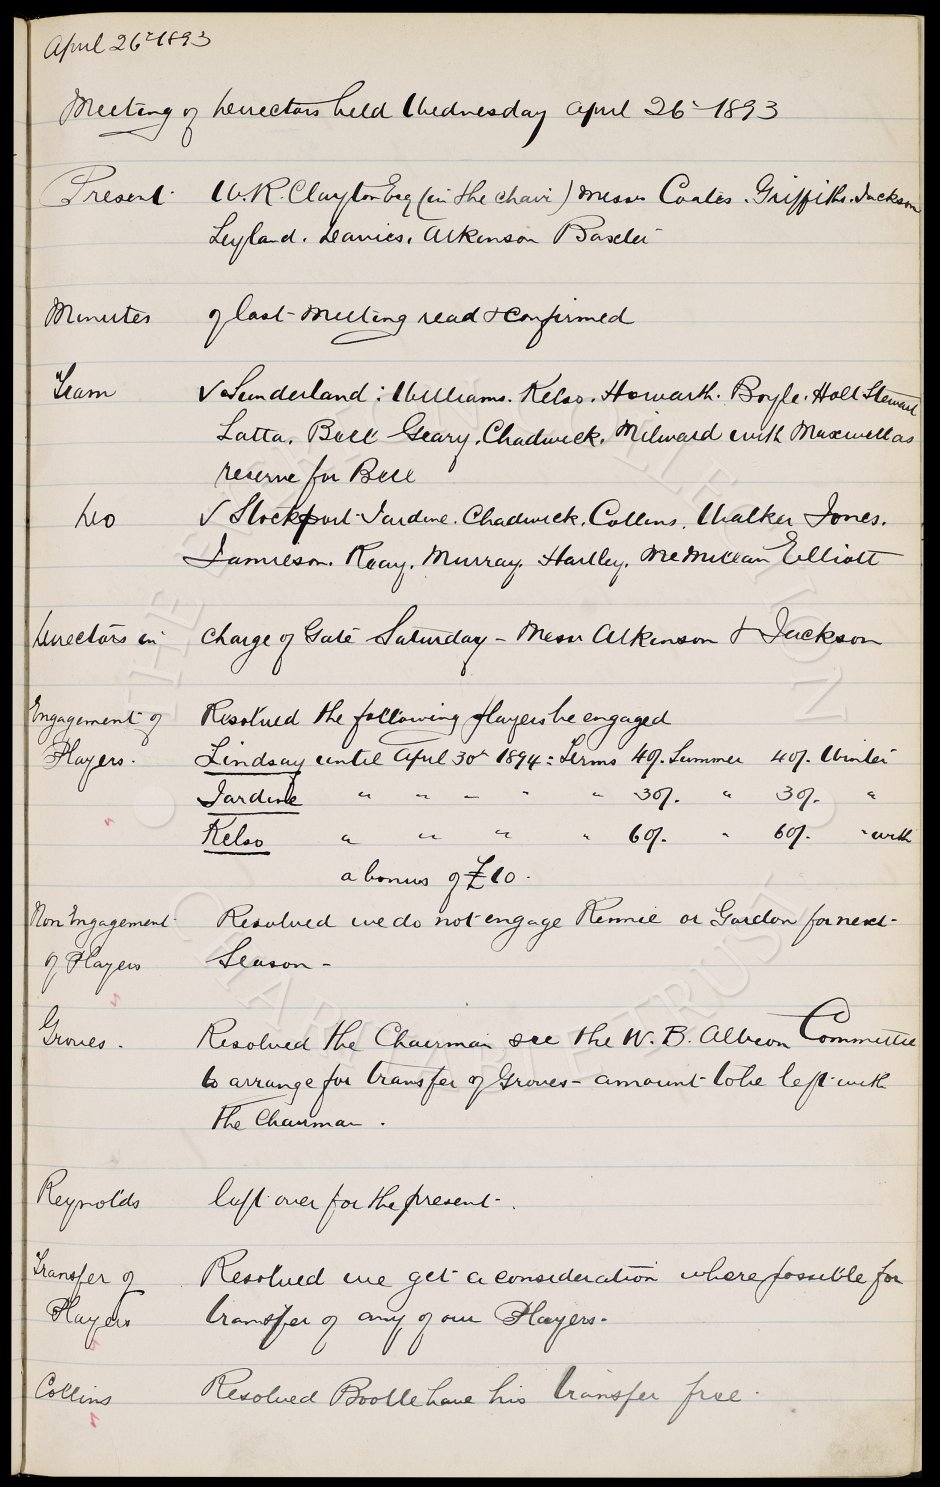 April 26th 1893
Meeting of Directors held Wednesday April 26th 1893
Present W.R. Clayton Esq (in the chair) Messrs Coates. Griffiths. Jackson
Leyland. Davies. Atkinson Baxter
Minutes of last meeting read & confirmed
Team v Sunderland: Williams. Kelso. Howarth. Boyle. Holt Stewart
Latta. Bell Geary. Chadwick. Milward with Maxwell as
reserve for Bell
Do v Stockport Jardine. Chadwick. Collins. Walker Jones.
Jamieson. Reay. Murray. Hartley. McMillan Elliott
Directors in charge of Gate Saturday - Messrs Atkinson & Jackson
Engagement of Resolved the following players be engaged
Players. Lindsay until April 30th 1894 = Terms 40/. Summer 40/. Winter
Jardine " " " " " 30/. " 30/. "
Kelso " " " " 60/. " 60/. " with
a bonus of £10.
Non Engagement Resolved we do not engage Rennie or Gordon for next
of Players Season -
Groves. Resolved the Chairman see the W.B. Albion Committee
to arrange for transfer of Groves - amount to be left with
the Chairman.
Reynolds left over for the present.
Transfer of Resolved we get a consideration where possible for
Players transfer of any of our Players.
Collins Resolved Bootle have his transfer free.
THE EVERTON COLLECTION
CHARITABLE TRUST